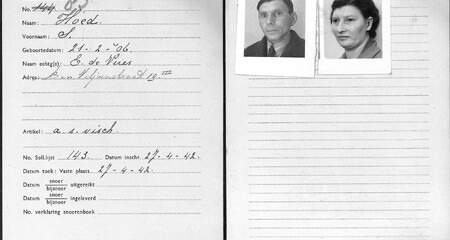 No. 144 83
Naam: Hoed.
Voornaam: S.
Geboortedatum: 21-2-'06.
Naam echtg(e): E. de Vries
Adres: 19 III
Artikel: a.s. visch.
No. Soll.lijst 143. Datum inschr. 27-4-42.
Datum toek: Vaste plaats 27-4-42.
Datum snoer
bijsnoer uitgereikt
Datum snoer
bijsnoer ingeleverd
No. verklaring snoerenboek